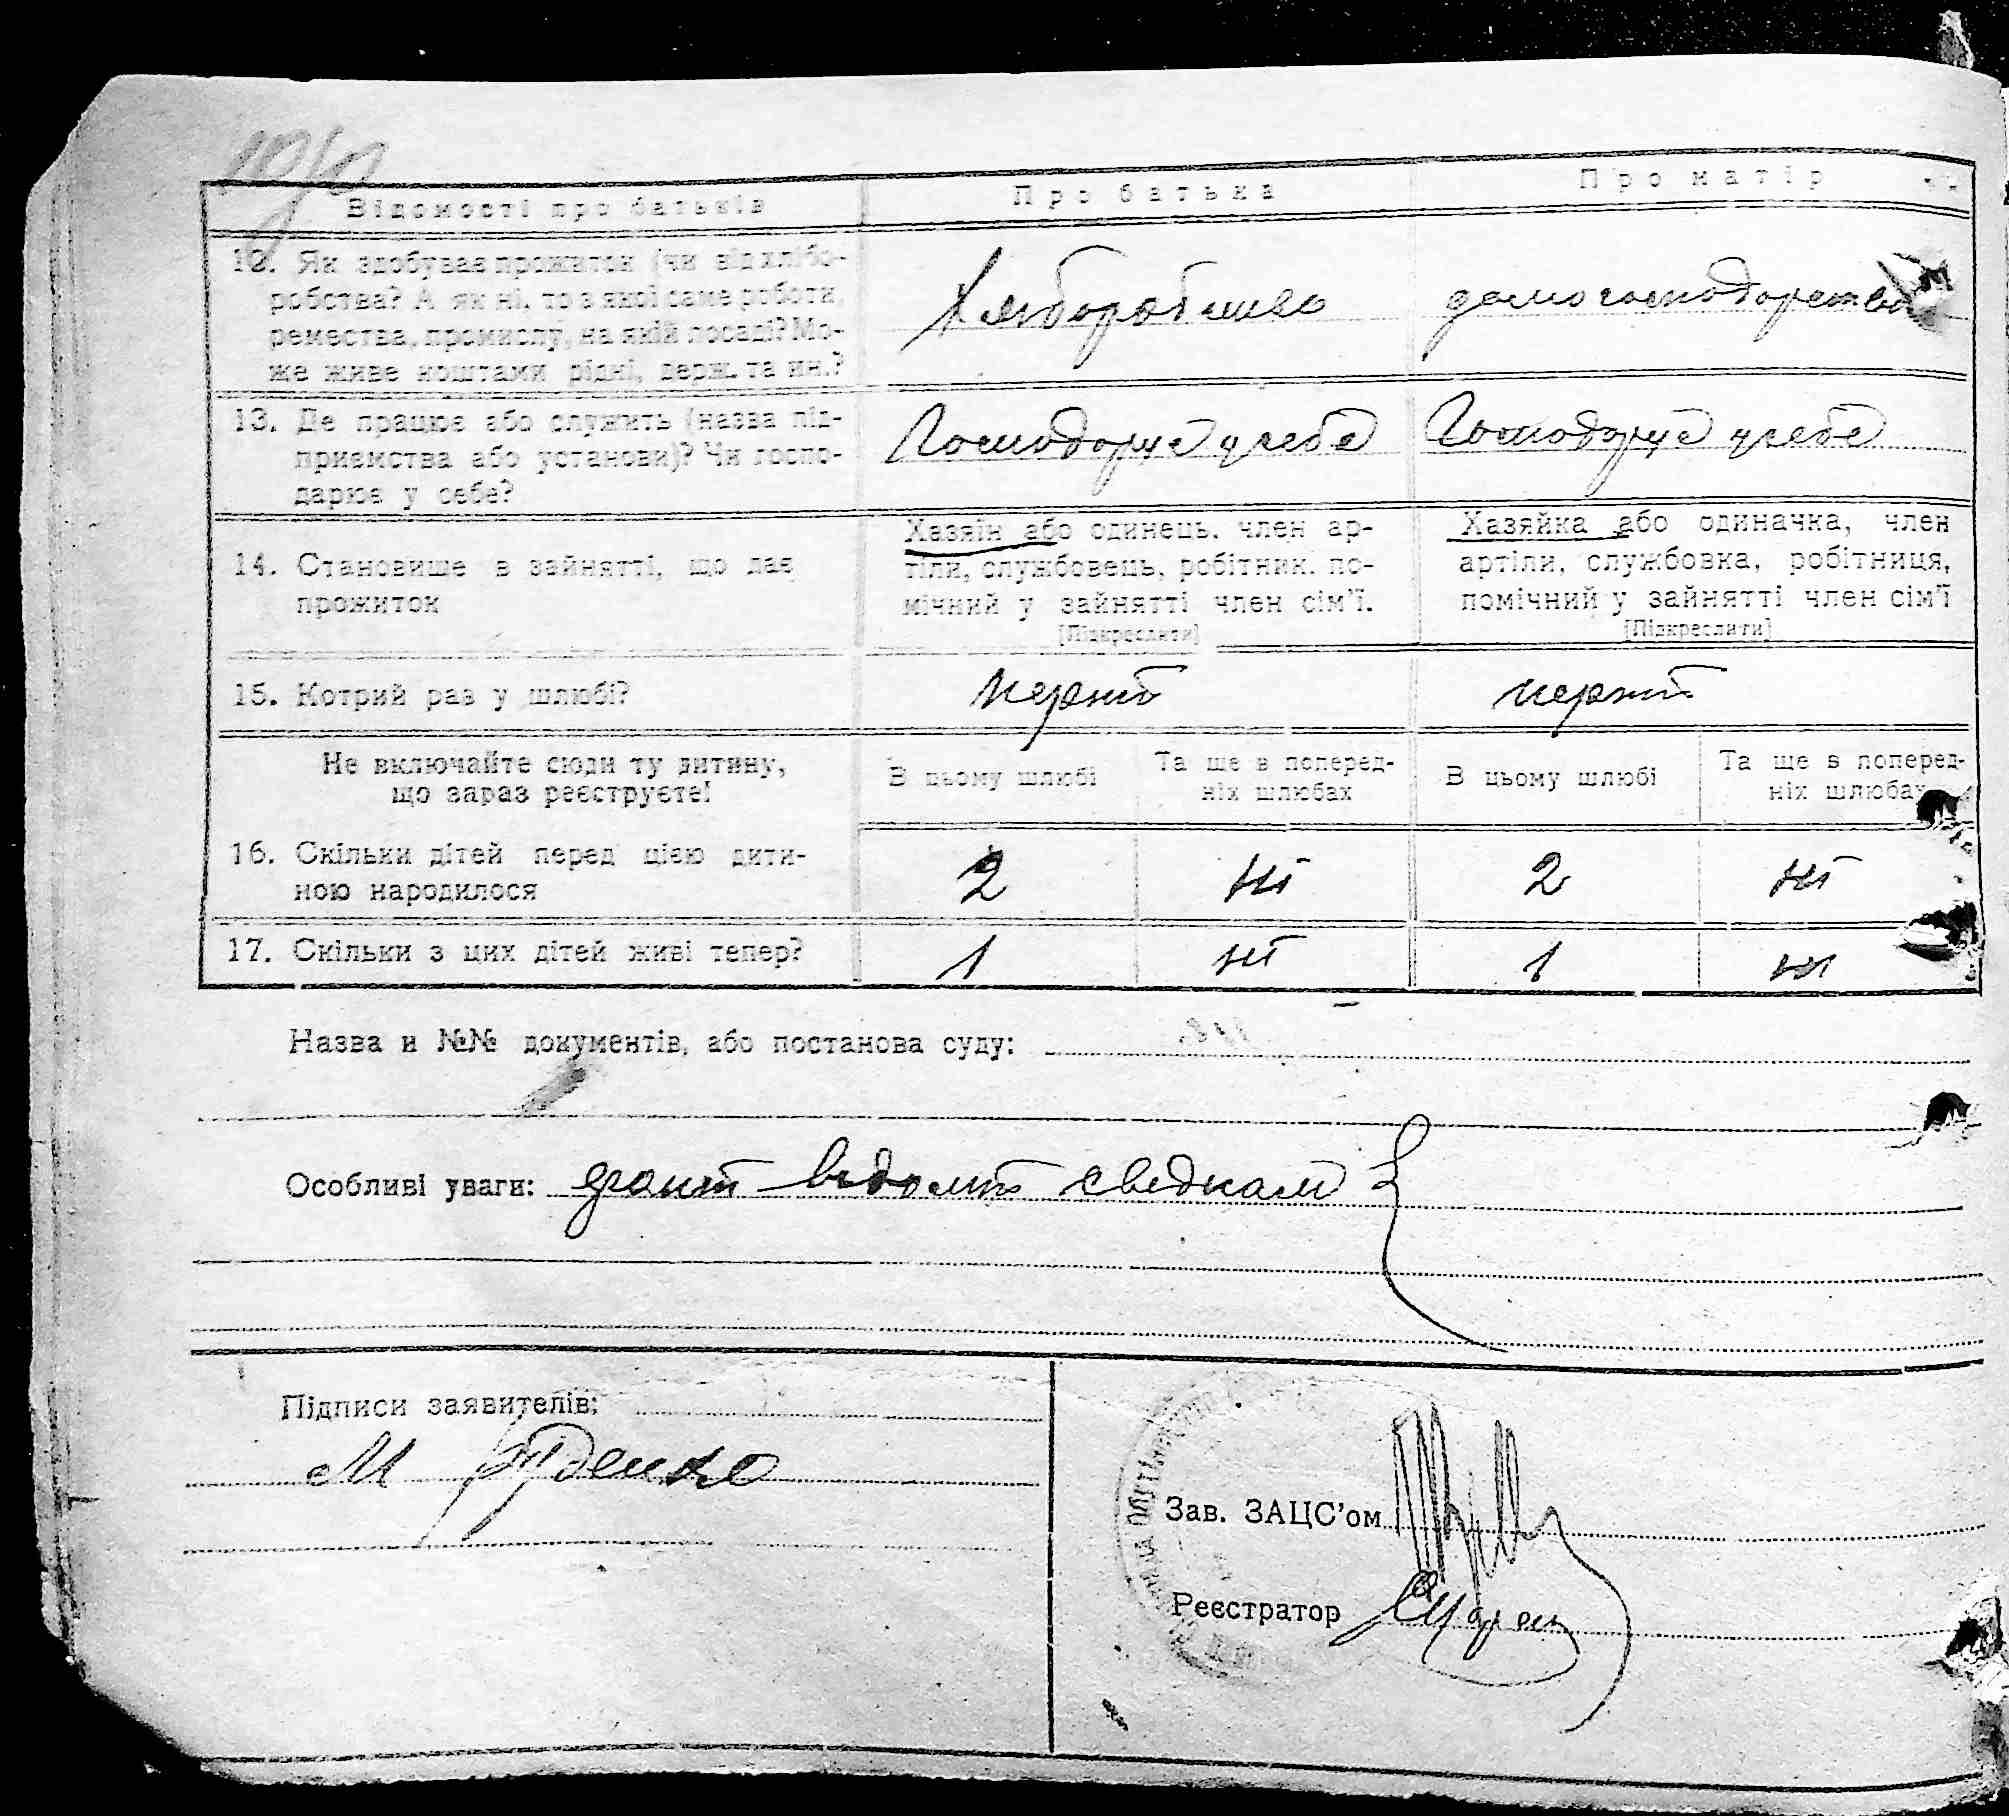 Відомості про батьків
Про батька
Про матір
12. Як здобуває прожиток (чи від хлібо-
робства? А як ні, то з якої саме роботи,
ремества, промислу, на якій посаді? Мо-
же живе коштами рідні, держ. та ин.?
Хліборобство
домогосподорство
13. Де працює або служить (назва під-
приємства або установи)? Чи госпо-
дарює у себе?
Господорує у себе
Господорує у себе
14. Становище в зайнятті, що дає
прожиток
Хазяїн або одинець, член ар-
тіли, службовець, робітник, по-
мічний у зайнятті член сім'ї.
[Підкреслити]
Хазяйка або одиначка, член
артіли, службовка, робітниця,
помічний у зайнятті член сім'ї
[Підкреслити]
15. Котрий раз у шлюбі?
перший
перший
Не включайте сюди ту дитину,
що зараз реєструєте!
В цьому шлюбі
Та ще в поперед-
ніх шлюбах
В цьому шлюбі
Та ще в поперед-
ніх шлюбах
16. Скільки дітей перед цією дити-
ною народилося
2 ні 2 ні
17. Скільки з цих дітей живі тепер?
1 ні 1 ні
Назва й №№ документів, або постанова суду:
Особливі уваги:
Підписи заявителів:
М Руденко
Зав. ЗАЦС'ом
Реєстратор